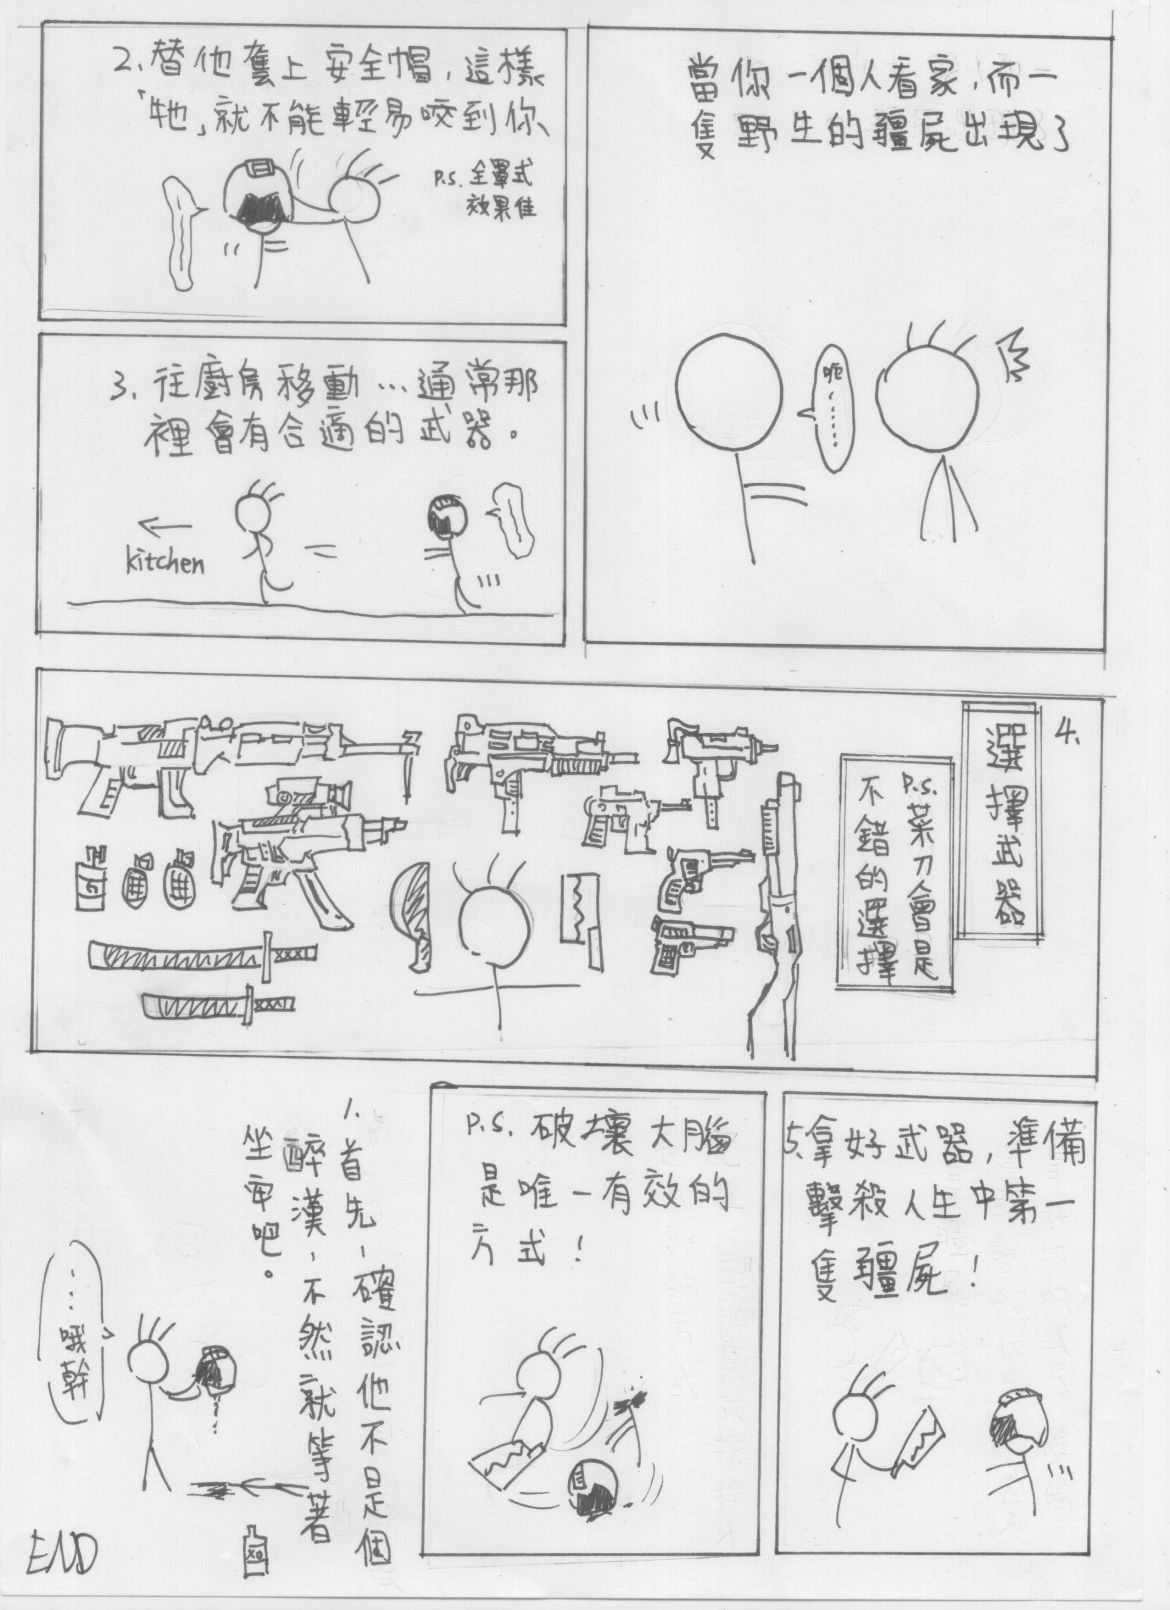 當你一個人看家,而一
隻野生的殭屍出現了
呃……
2.替他套上安全帽,這樣
「牠」就不能輕易咬到你、
P.S.全罩式
效果佳
3.往廚房移動…通常那
裡會有合適的武器。
kitchen
4.
選擇武器
P.S.菜刀會是
不錯的選擇
5.拿好武器,準備
擊殺人生中第一
隻殭屍!
P.S.破壞大腦
是唯一有效的
方式!
1.首先,確認他不是個
醉漢,不然就等著
坐牢吧。
……哦幹
XO
END